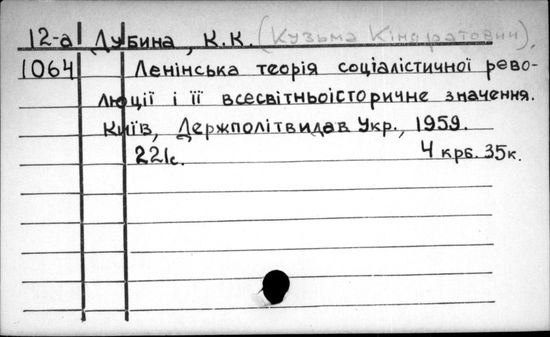 12-а Дубина, К.К. (Кузьма Кіндратович).
1064 Ленінська теорія соціалістичної рево-
люції і її всесвітньоісторичне значення.
Київ, Держполітвидав Укр., 1959.
221с. 4 крб. 35к.